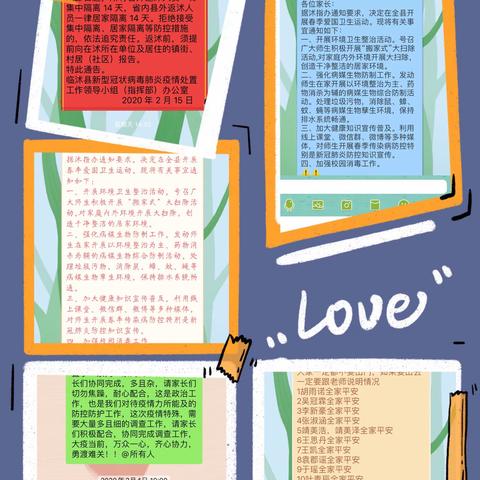 集中隔离 14 天，省内县外返沭人
员一律居家隔离 14 天。拒绝接受
集中隔离、居家隔离等防控措施
的，依法追究责任。返沭前，须提
前向在沭所在单位及居住的镇街、
村居（社区）报告。
特此通告。
临沭县新型冠状病毒肺炎疫情处置
工作领导小组（指挥部）办公室
2020 年 2 月 15 日
各位家长：
据沭指办通知要求，决定在全县开
展春季爱国卫生运动。现将有关事
宜通知如下：
一、开展环境卫生整治活动。号召
广大师生积极开展“搬家式”大扫除
活动,对家庭内外环境开展大扫除,
创造干净整洁的居家环境。
二、强化病媒生物防制工作。发动
师生在家开展以环境整治为主、药
物消杀为辅的病媒生物综合防制活
动。处理垃圾污物，消除鼠、蟑、
蚊、蝇等病媒生物孳生环境，保持
排水系统畅通。
三、加大健康知识宣传普及。利用
线上课堂、微信群、微博等多种媒
体，对师生开展春季传染病防控特
别是新冠肺炎防控知识宣传。
四、加强校园消毒工作。
据沭指办通知要求，决定在全县开展
春季爱国卫生运动。现将有关事宜通
知如下：
一、开展环境卫生整治活动。号召
广大师生积极开展“搬家式”大扫除活
动,对家庭内外环境开展大扫除，创
造干净整洁的居家环境。
二、强化病媒生物防制工作。发动师
生在家开展以环境整治为主、药物消
杀为辅的病媒生物综合防制活动。处
理垃圾污物，消除鼠、蟑、蚊、蝇等
病媒生物孳生环境，保持排水系统畅
通。
三、加大健康知识宣传普及。利用线
上课堂、微信群、微博等多种媒体，
对师生开展春季传染病防控特别是新
冠肺炎防控知识宣传。
四、加强校园消毒工作。
“Love”
长们协同完成，多且杂，请家长们
切勿焦躁，耐心配合，这是政治工
作，也是我们对待疫情力所能及的
防控防护工作，这次疫情特殊，需
要大量多且细的调查工作，请家长
们积极配合，协同完成调查工作，
大疫当前，万众一心，齐心协力，
勇渡难关！！@所有人
一定要跟老师说明情况
1胡雨诺全家平安
2吴冠霖全家平安
3李新豪全家平安
4张淑涵全家平安
5靖美浩、靖美泽全家平安
6王恩丹全家平安
7王凯全家平安
8袁郡谣全家平安
9于瑶全家平安